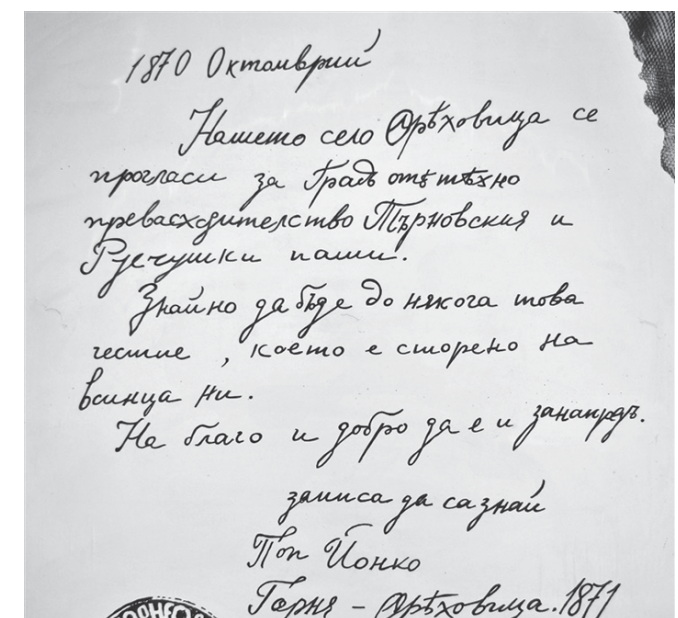 1870 Октомврий
Нашето село Орѣховица се
прогласи за Градъ отъ тѣхно
превасходителство Търновския и
Русчушки паши.
Знайно да бъде до някога това
честие , което е сторено на
всинца ни.
На благо и добро да е и занапредъ.
записа да са знай
Поп Йонко
Горня - Орѣховица. 1871